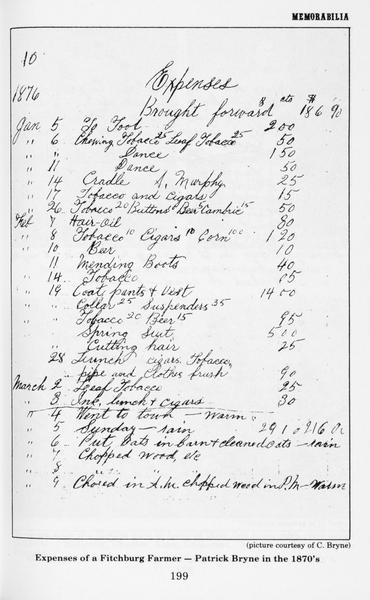 MEMORABILIA
10
Expenses
1876 Brought forward $ cts $ 186 90
Jan 5 To Foot 2 00
" 6 Chewing Tobacco 25 Leaf Tobacco 25 50
" " Dance 1 50
" 11 Dance 50
" 14 Cradle S. Murphy 25
" 17 Tobacco and Cigars 15
" 26 Tobacco 20 Buttons 10 Beer 5 Cambric 15 50
Feb 7 Hair Oil 80
" 8 Tobacco 10 Cigars 10 Corn 100 1 20
" 10 Beer 10
11 Mending Boots 40
14 Tobacco 05
" 19 Coat pants & Vest 14 00
" Collar 25 Suspenders 35
Tobacco 20 Beer 15 95
" Spring Suit 5 00
" Cutting hair 25
" 28 Lunch cigars Tobacco,
pipe and Clothes brush 90
March 2 Leaf Tobacco 25
" 3 Ink, lunch & cigars 30
" 4 Went to town — Warm
" 5 Sunday — rain 29 10 216 00
" 6 Put Oats in barn & cleaned oats — rain
" 7 Chopped Wood, etc
" 8 " " "
" 9 Chored in A.M. chopped wood in P.M — Warm
(picture courtesy of C. Bryne)
Expenses of a Fitchburg Farmer — Patrick Bryne in the 1870's
199